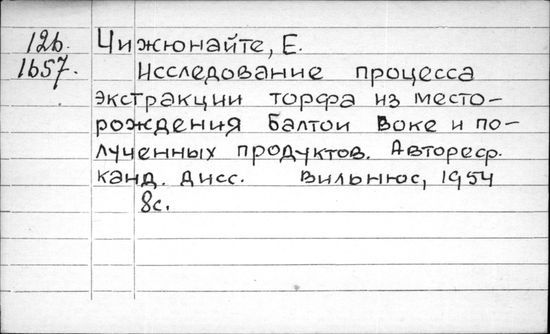 12б. Чижюнайте, Е.
1657. Исследование процесса
экстракции торфа из место-
рождения Балтои Воке и по-
лученных продуктов. Автореф.
канд. дисс. Вильнюс, 1954
8с.